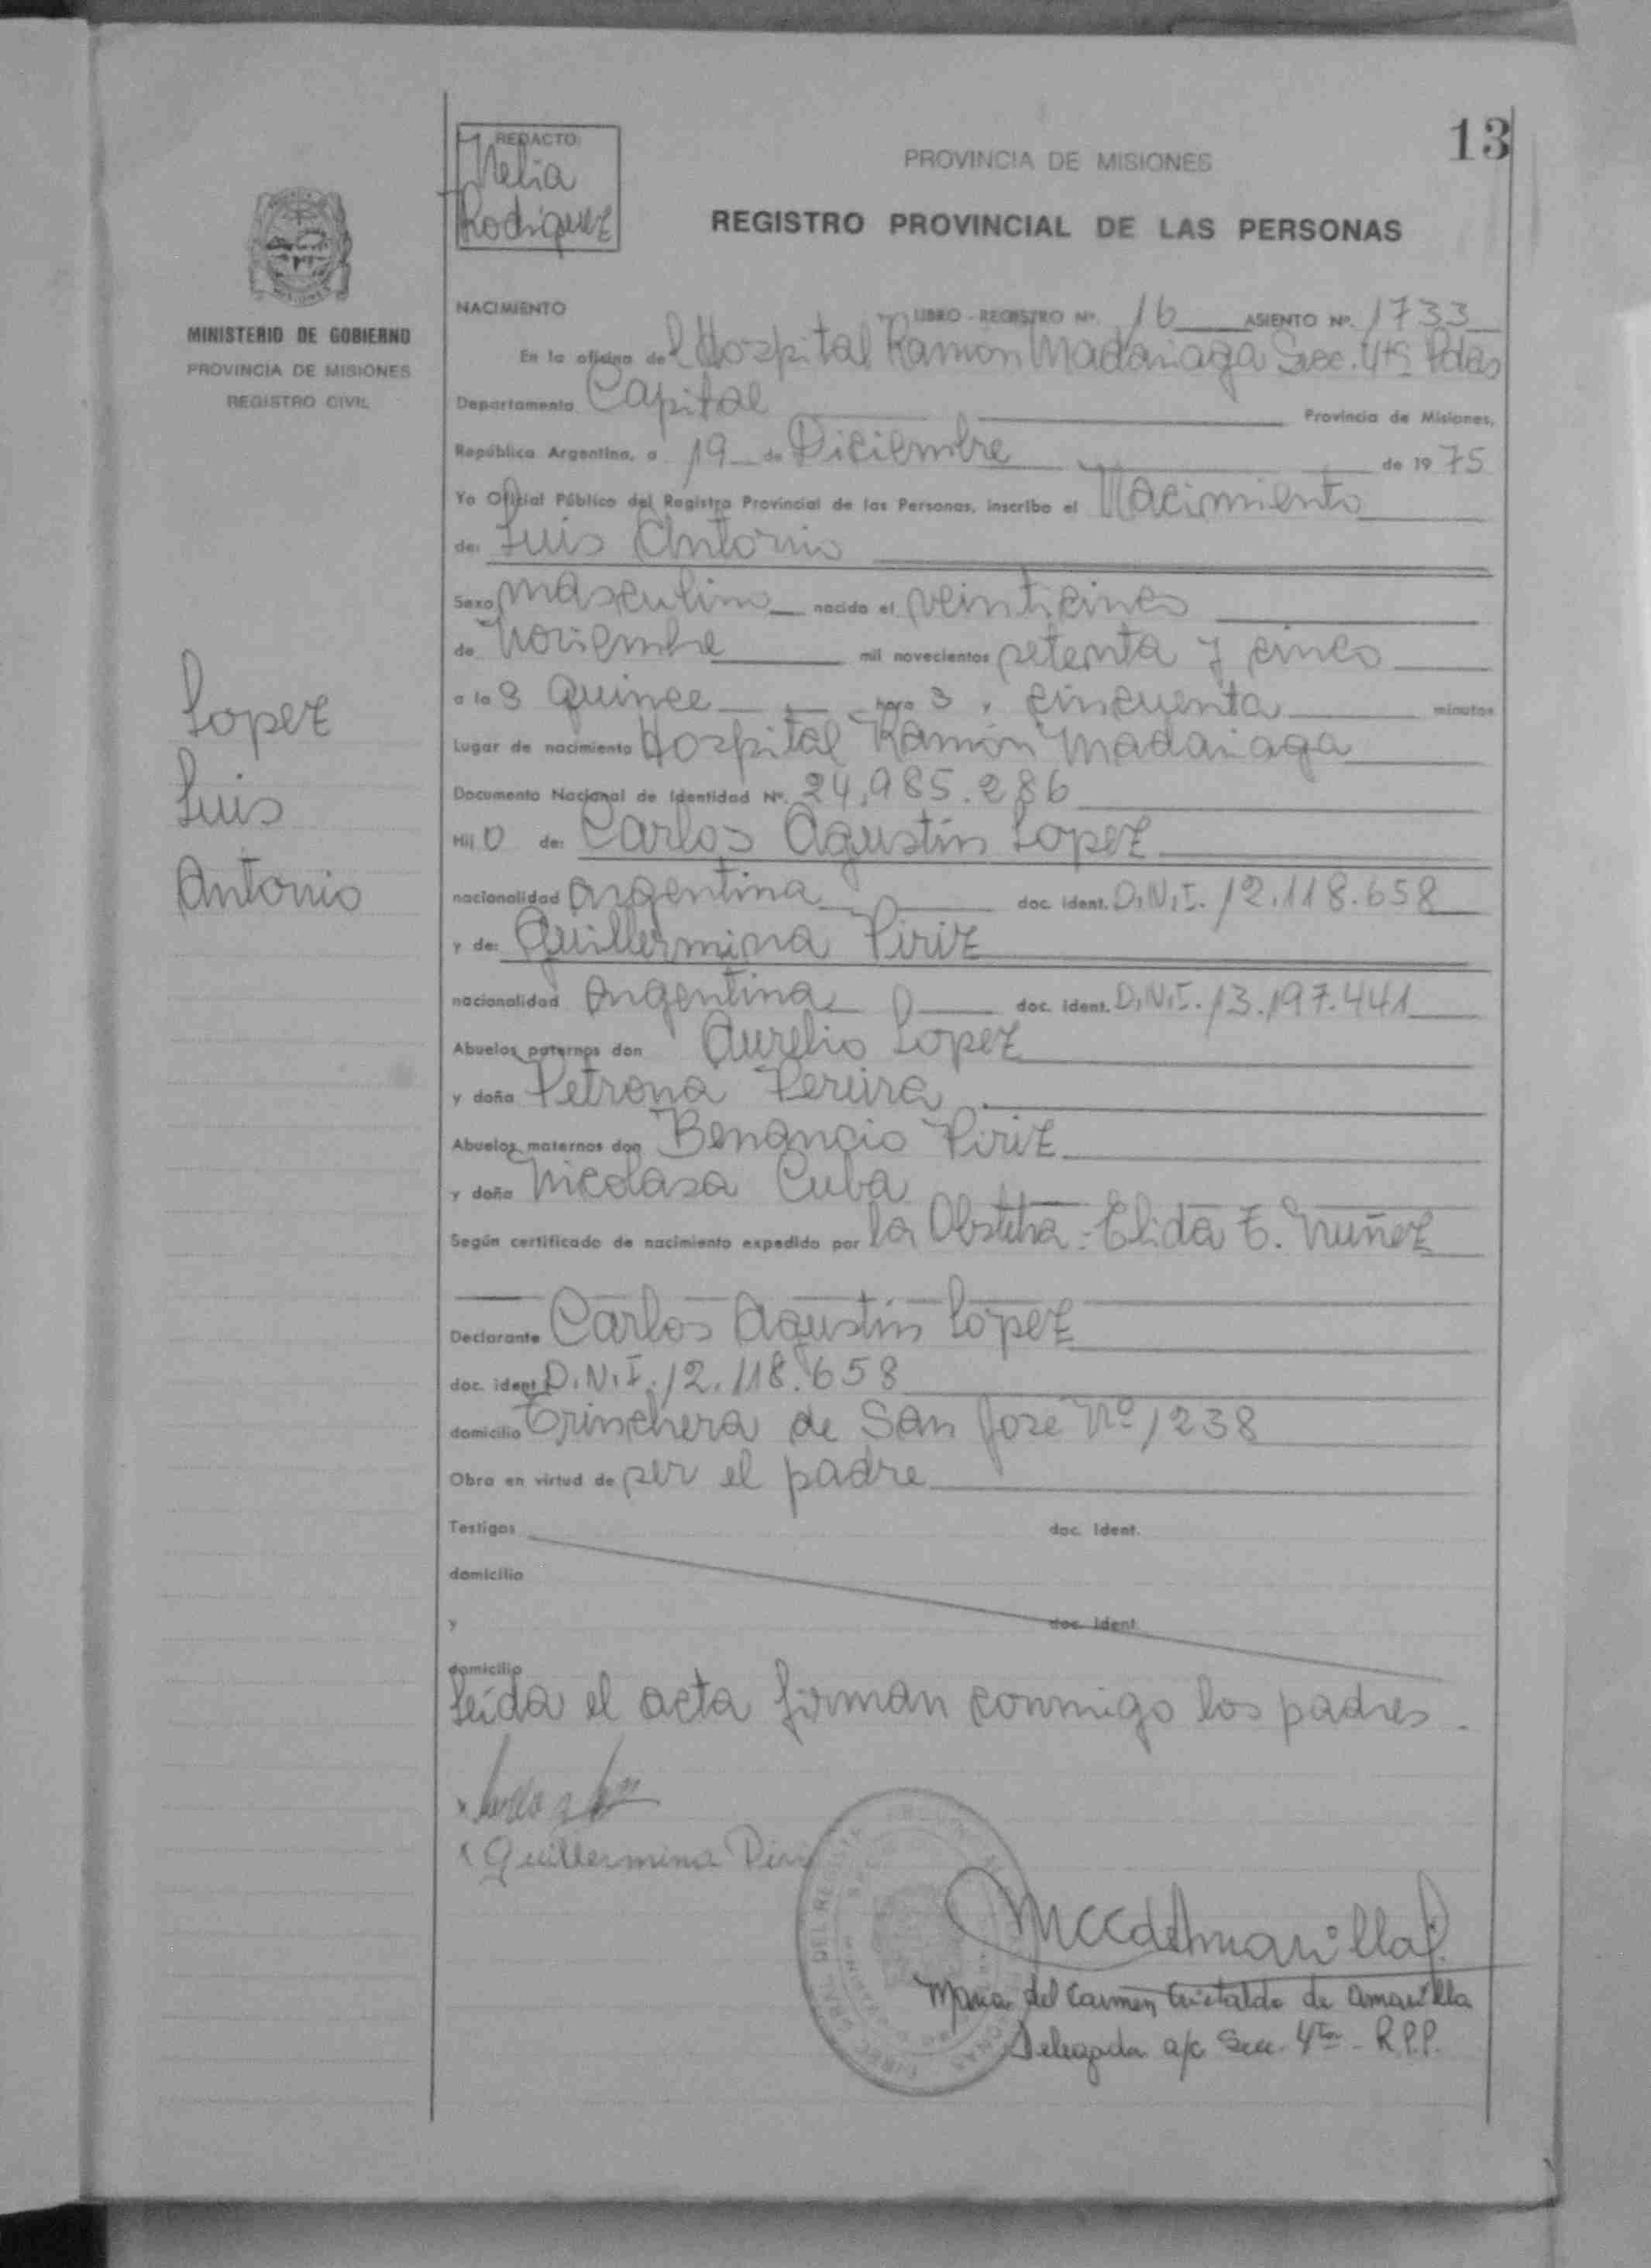 13
REDACTO
Nelia
Rodriguez
PROVINCIA DE MISIONES
REGISTRO PROVINCIAL DE LAS PERSONAS
MINISTERIO DE GOBIERNO
PROVINCIA DE MISIONES
REGISTRO CIVIL
Lopez
Luis
Antonio
NACIMIENTO LIBRO - REGISTRO Nº. 16 ASIENTO Nº. 1733
En la oficina del Hospital Ramon Madariaga Secc. 4ta Pdas
Departamento Capital Provincia de Misiones,
República Argentina, a 19 de Diciembre de 1975
Yo Oficial Público del Registro Provincial de las Personas, inscribo el Nacimiento
de: Luis Antonio
Sexo masculino nacido el veinticinco
de Noviembre mil novecientos setenta y cinco
a las quince horas, cincuenta minutos
Lugar de nacimiento Hospital Ramón Madariaga
Documento Nacional de Identidad Nº. 24.985.286
Hijo de: Carlos Agustín Lopez
nacionalidad Argentina doc. ident. D.N.I. 12.118.658
y de: Guillermina Piriz
nacionalidad Argentina doc. ident. D.N.I. 13.197.441
Abuelos paternos don Aurelio Lopez
y doña Petrona Pereira
Abuelos maternos don Benancio Piriz
y doña Nicolasa Cuba
Según certificado de nacimiento expedido por la Obstetra: Elida E. Nuñez
Declarante Carlos Agustín Lopez
doc. ident. D.N.I. 12.118.658
domicilio Trinchera de San Jose Nº 1238
Obra en virtud de ser el padre
Testigos doc. ident.
domicilio
y doc. ident
domicilio
Leída el acta firman conmigo los padres.
Guillermina
Maria del Carmen Cristaldo de Amarilla
Delegada a/c Secc. 4ta - R.P.P.